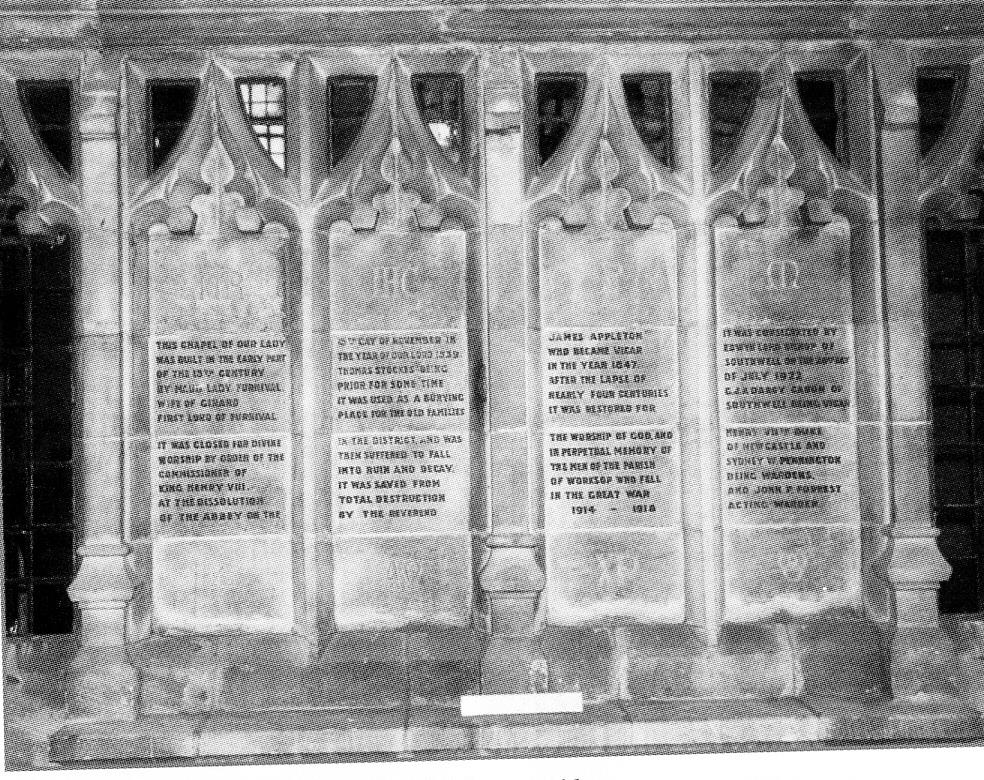 IHC
M
THIS CHAPEL OF OUR LADY
WAS BUILT IN THE EARLY PART
OF THE 13TH CENTURY
BY MAUD LADY FURNIVAL
WIFE OF GIRARD
FIRST LORD OF FURNIVAL
IT WAS CLOSED FOR DIVINE
WORSHIP BY ORDER OF THE
COMMISSIONER OF
KING HENRY VIII.
AT THE DISSOLUTION
OF THE ABBEY ON THE
15TH DAY OF NOVEMBER IN
THE YEAR OF OUR LORD 1539.
THOMAS STOCKES BEING
PRIOR FOR SOME TIME
IT WAS USED AS A BURYING
PLACE FOR THE OLD FAMILIES
IN THE DISTRICT, AND WAS
THEN SUFFERED TO FALL
INTO RUIN AND DECAY.
IT WAS SAVED FROM
TOTAL DESTRUCTION
BY THE REVEREND
JAMES APPLETON
WHO BECAME VICAR
IN THE YEAR 1847.
AFTER THE LAPSE OF
NEARLY FOUR CENTURIES
IT WAS RESTORED FOR
THE WORSHIP OF GOD, AND
IN PERPETUAL MEMORY OF
THE MEN OF THE PARISH
OF WORKSOP WHO FELL
IN THE GREAT WAR
1914 - 1918
IT WAS CONSECRATED BY
EDWYN LORD BISHOP OF
SOUTHWELL ON THE DAY
OF JULY 1922
CANON OF
SOUTHWELL BEING VICAR
HENRY VIITH DUKE
OF NEWCASTLE AND
SYDNEY W. PENNINGTON
BEING WARDENS,
AND JOHN P. FORREST
ACTING WARDEN.
XP